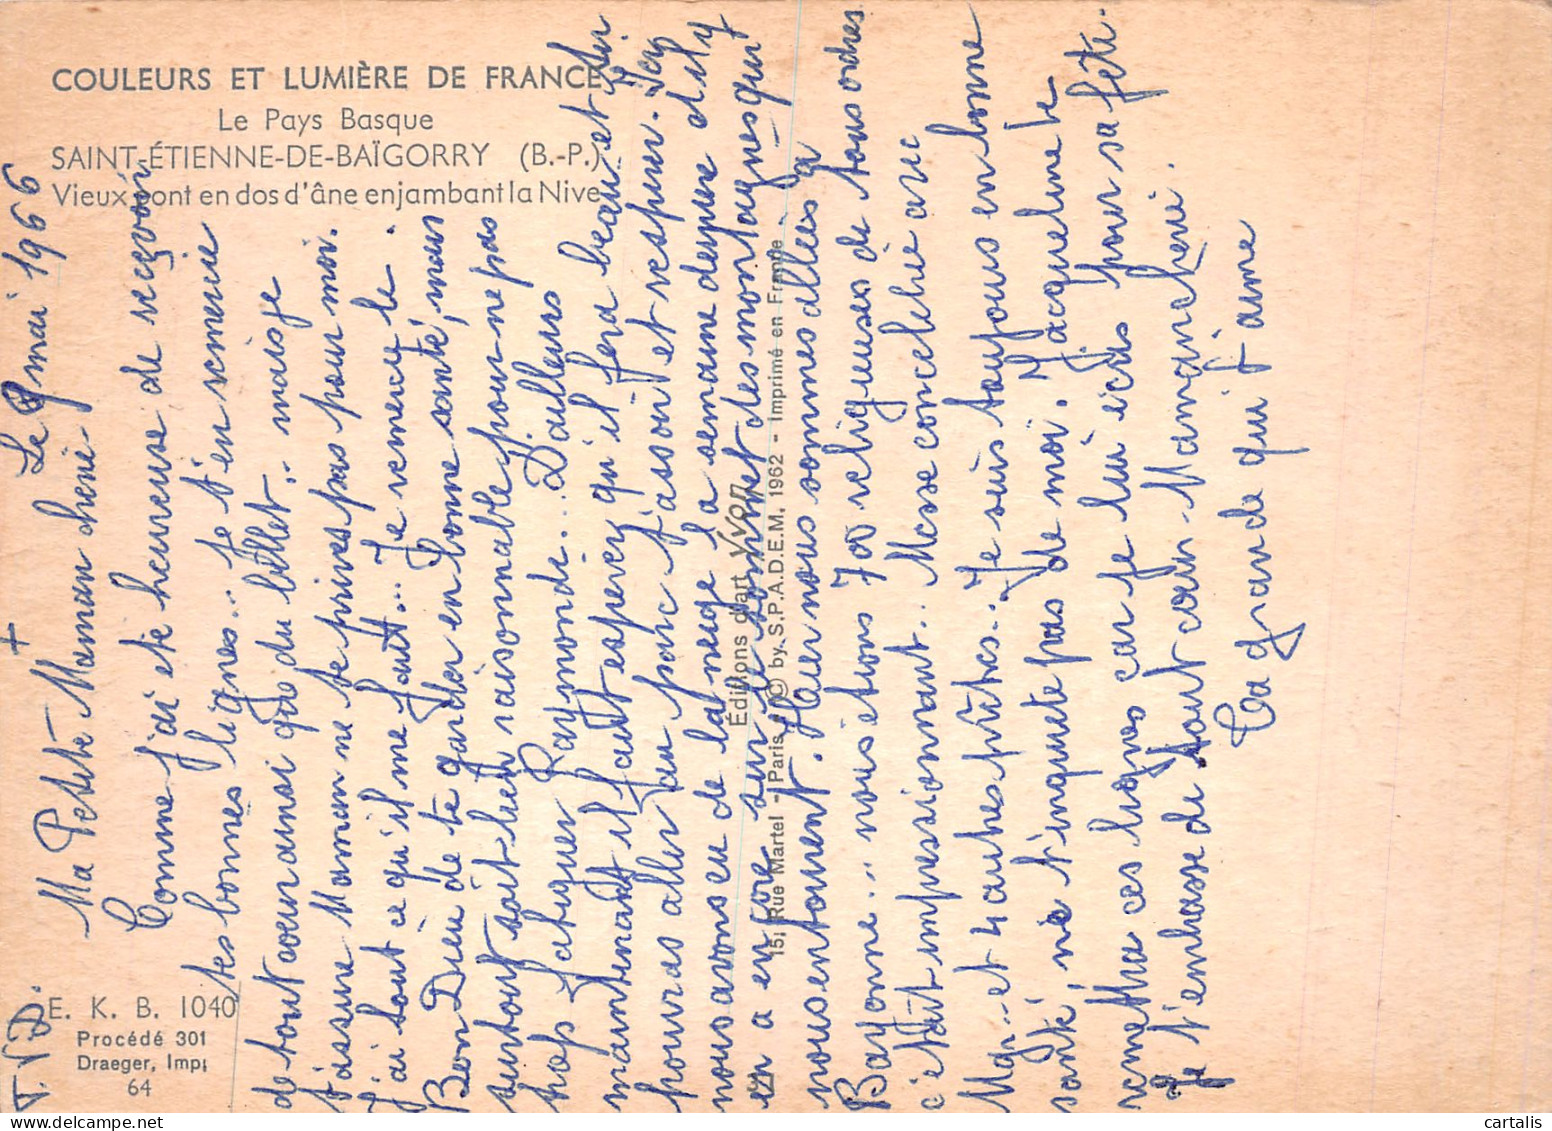 COULEURS ET LUMIÈRE DE FRANCE
Le Pays Basque
SAINT-ÉTIENNE-DE-BAÏGORRY (B.-P.)
Vieux pont en dos d'âne enjambant la Nive
E. K. B. 1040
Procédé 301
Draeger, Imp.
64
Éditions d'art YVON
15, Rue Martel - Paris - © by S.P.A.D.E.M. 1962 - Imprimé en France
+
Le 9 mai 1966
Ma Petite Maman cherie
Comme j'ai été heureuse de recevoir
tes bonnes lignes... je t'en remercie
de tout coeur ainsi que du billet.. mais je
t'assure Maman ne te prives pas pour moi.
j'ai tout ce qu'il me faut... Je remercie le
Bon Dieu de te garder en bonne santé, mais
surtout soit bien raisonnable pour ne pas
trop fatiguer Raymonde... D'ailleurs
maintenant il faut esperer qu'il fera beau et tu
pourras aller au parc t'assoir et respirer.
nous avons eu de la neige la semaine derniere et il y
en a encore sur le sommet des montagnes qui
nous entourent. Hier nous sommes allées à
Bayonne... nous étions 700 religieuses de tous ordres
c'était impressionnant.. Messe concelebrée avec
Mgr... et 4 autres prêtres.. Je suis toujours en bonne
santé, ne t'inquiete pas de moi. Jacqueline te
remettra ces lignes car je lui écris pour sa fête.
Je t'embrasse de tout coeur Maman cherie.
Ta grande qui t'aime